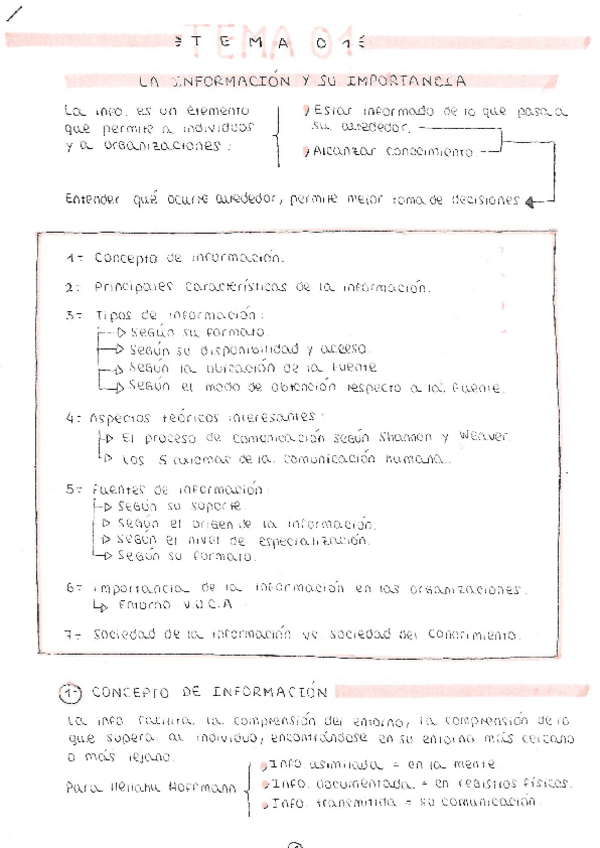 TEMA 01
TEMA 01
LA INFORMACIÓN Y SU IMPORTANCIA
La info. es un elemento
que permite a individuos
y a organizaciones:
Estar informado de lo que pasa a
su alrededor.
Alcanzar conocimiento
Entender qué ocurre alrededor, permite mejor toma de decisiones
1- Concepto de información.
2- Principales características de la información.
3- Tipos de información:
Según su formato.
Según su disponibilidad y acceso.
Según la ubicación de la fuente
Según el modo de obtención respecto a la fuente.
4- Aspectos teóricos interesantes:
El proceso de comunicación según Shannon y Weaver.
Los 5 axiomas de la comunicación humana.
5- Fuentes de información:
Según su soporte
Según el origen de la información.
Según el nivel de especialización.
Según su formato.
6- Importancia de la información en las organizaciones.
Entorno V.U.C.A
7- Sociedad de la información vs sociedad del conocimiento.
1- CONCEPTO DE INFORMACIÓN
La info. facilita la comprensión del entorno, la comprensión de lo
que supera al individuo, encontrándose en su entorno más cercano
o más lejano.
Para Hoffmann
Info asimilada = en la mente
Info. documentada = en registros físicos.
Info. transmitida = su comunicación.
1